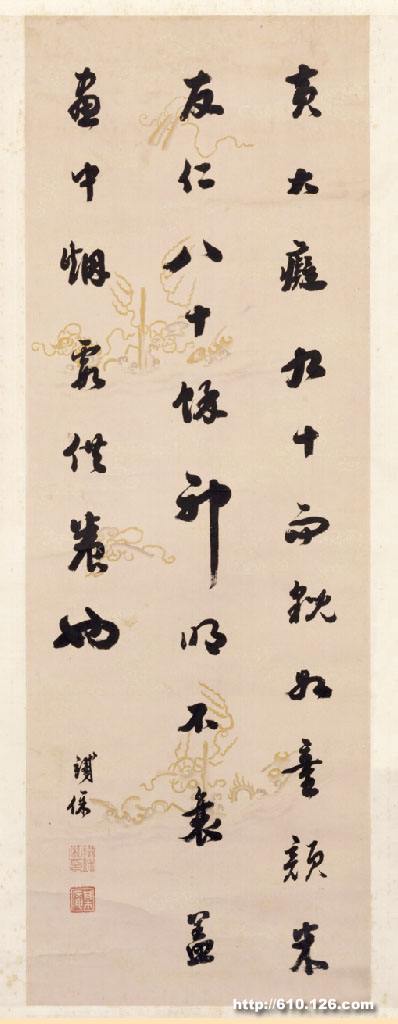 黄大癡九十而貌如童顏米
友仁八十餘神明不衰盖
畫中烟霞供養也
鐵保
http://610.126.com